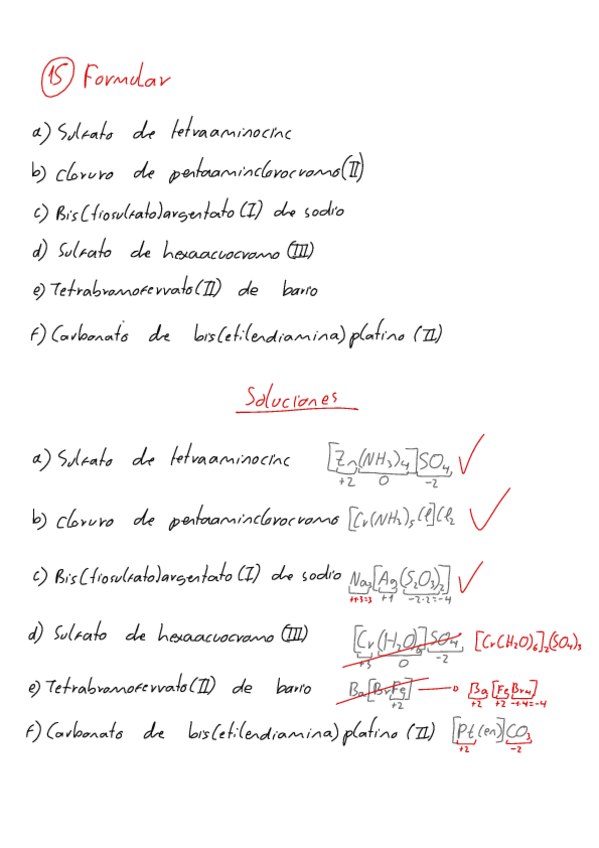 15 Formular
a) Sulfato de tetraaminocinc
b) Cloruro de pentaaminclorocromo(II)
c) Bis(tiosulfato)argentato (I) de sodio
d) Sulfato de hexaacuocromo (III)
e) Tetrabromoferrato(II) de bario
f) Carbonato de bis(etilendiamina)platino (II)
Soluciones
a) Sulfato de tetraaminocinc [Zn(NH3)4]SO4
+2 0 -2
b) Cloruro de pentaaminclorocromo [Cr(NH3)5Cl]Cl2
c) Bis(tiosulfato)argentato (I) de sodio Na3[Ag(S2O3)2]
+1·3=3 +1 -2·2=-4
d) Sulfato de hexaacuocromo (III) [Cr(H2O)6]SO4 [Cr(H2O)6]2(SO4)3
+3 0 -2
e) Tetrabromoferrato(II) de bario Ba[BrFe] Ba[FeBr4]
+2 +2 +2 -1·4=-4
f) Carbonato de bis(etilendiamina)platino (II) [Pt(en)]CO3
+2 -2